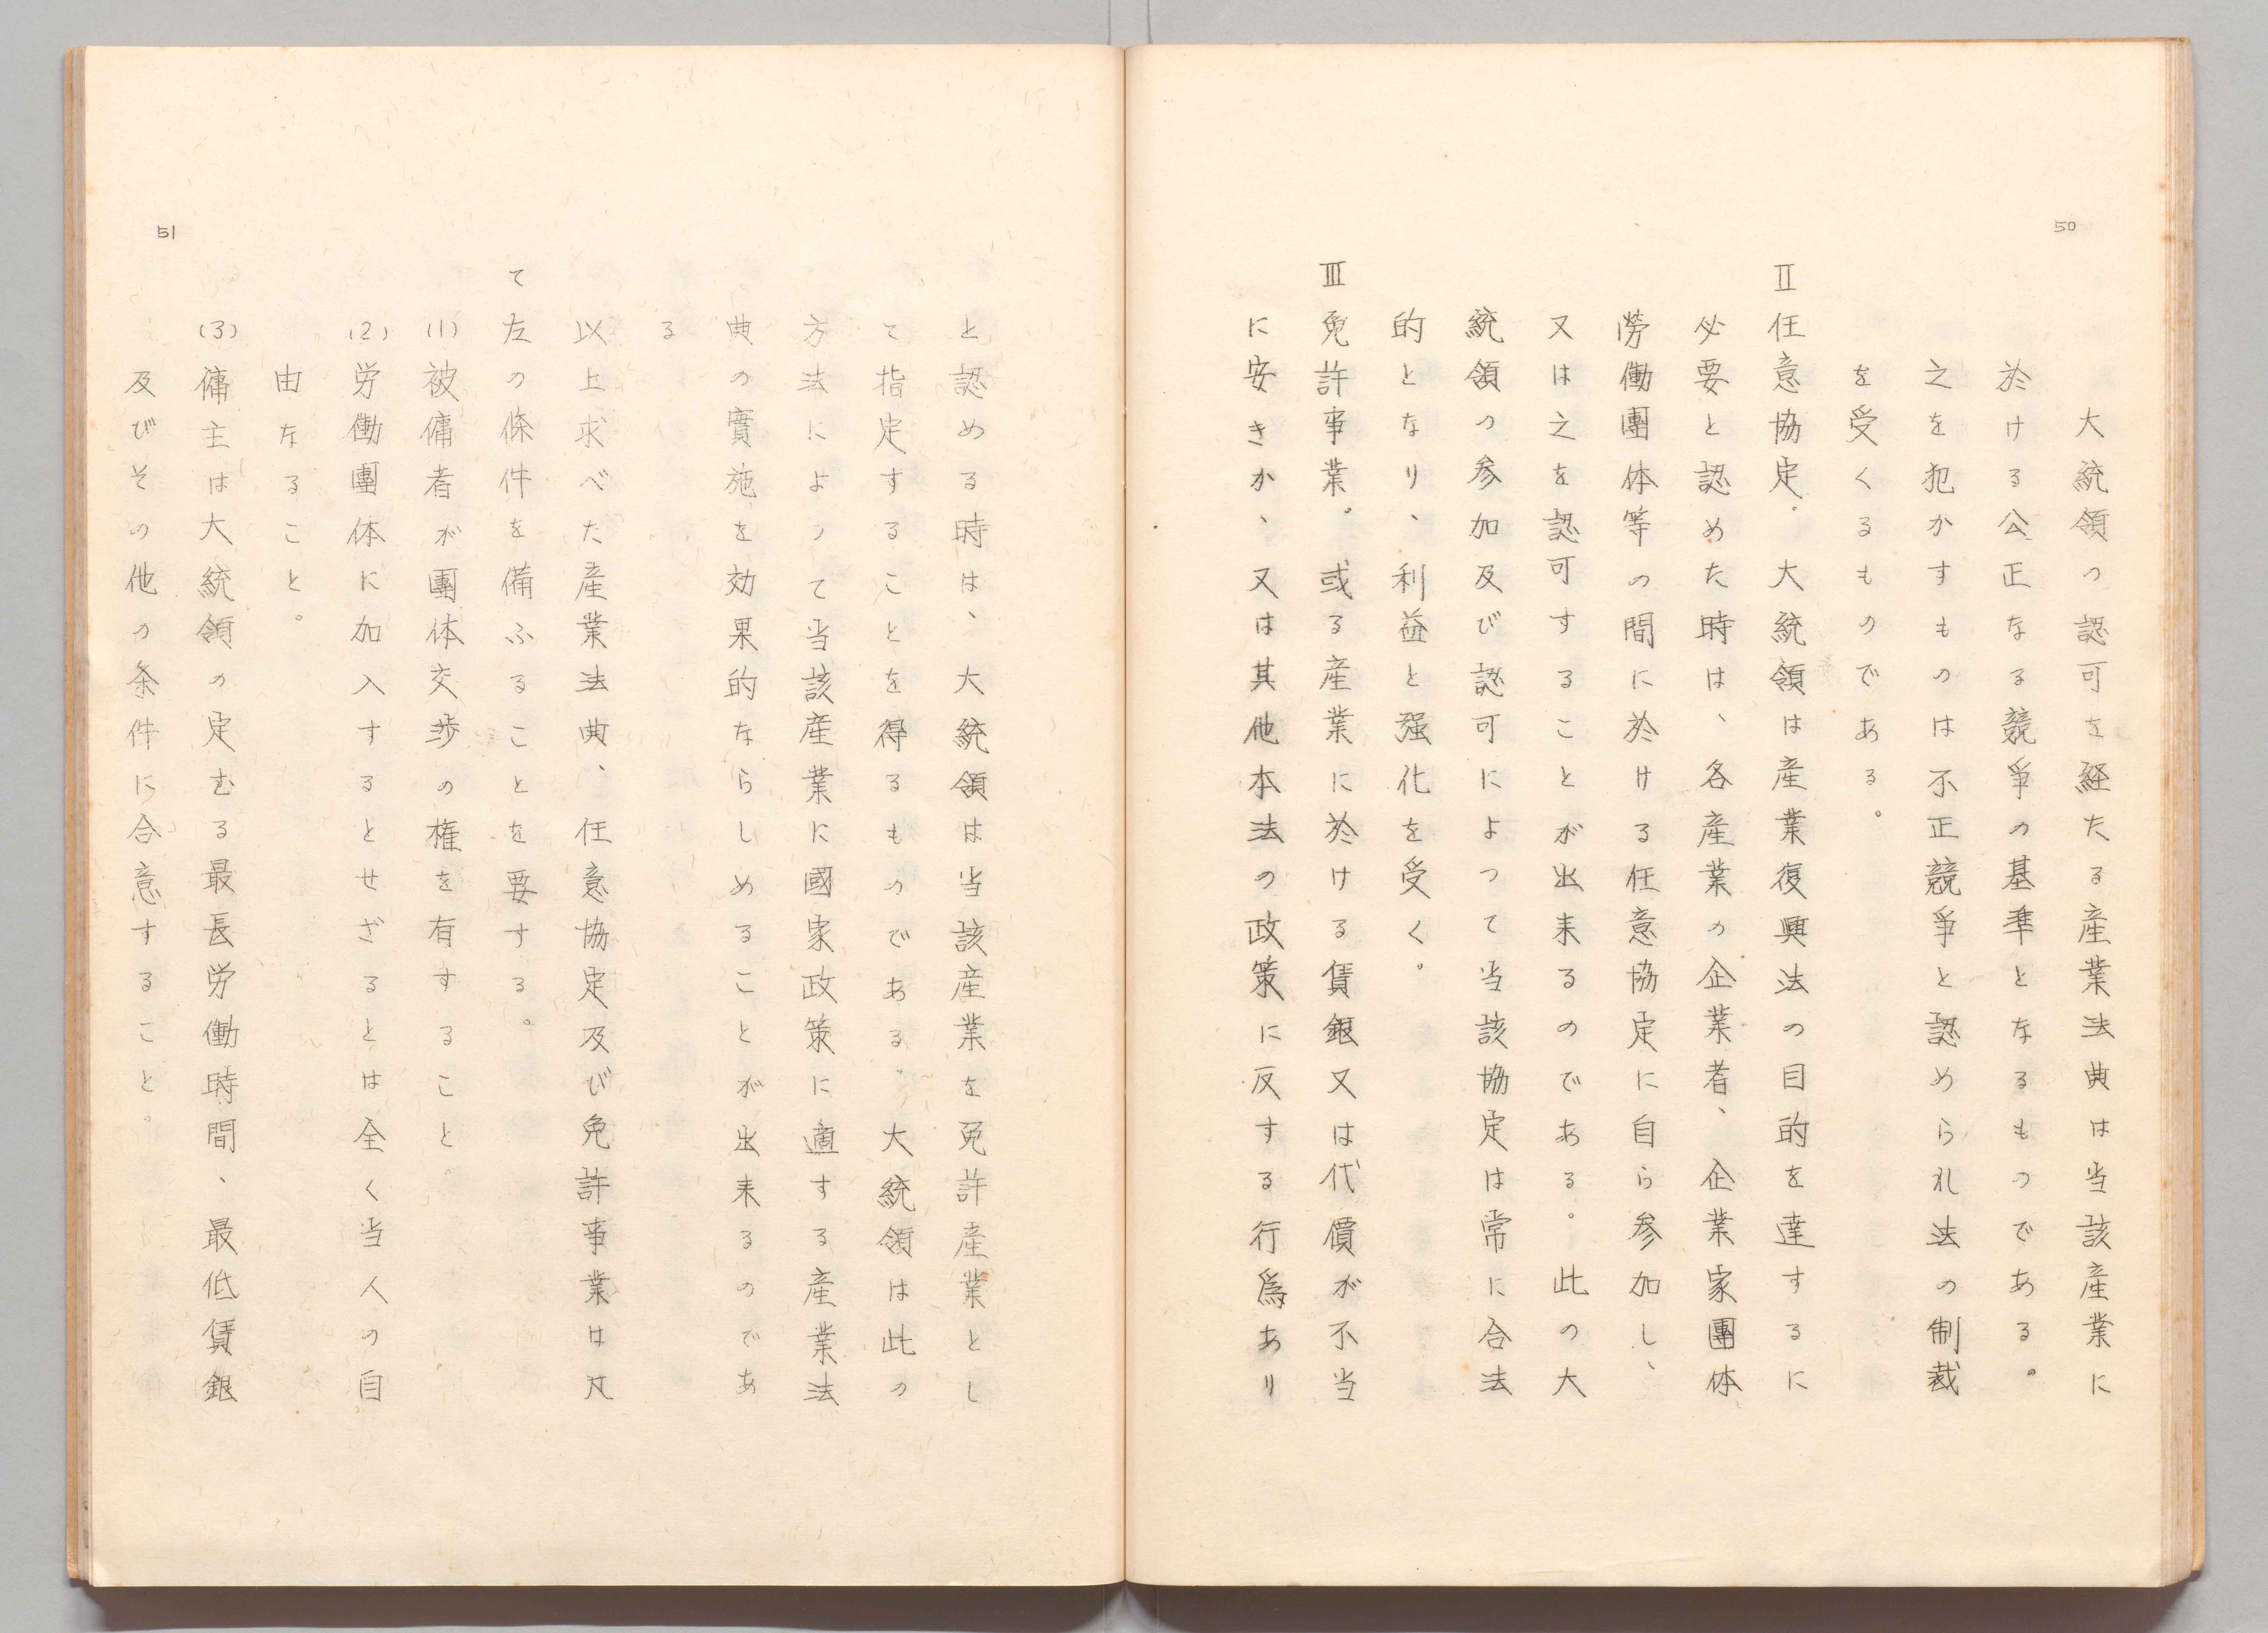 50
大統領の認可を経たる産業法典は当該産業に
於ける公正なる競爭の基準となるものである。
之を犯かすものは不正競爭と認められ法の制裁
を受くるものである。
Ⅱ任意協定。大統領は産業復興法の目的を達するに
必要と認めた時は、各産業の企業者、企業家團体
勞働團体等の間に於ける任意協定に自ら参加し、
又は之を認可することが出来るのである。此の大
統領の参加及び認可によつて当該協定は常に合法
的となり、利益と强化を受く。
Ⅲ免許事業。或る産業に於ける賃銀又は代價が不当
に安きか、又は其他本法の政策に反する行爲あり
51
と認める時は、大統領は当該産業を免許産業とし
て指定することを得るものである。大統領は此の
方法によつて当該産業に國家政策に適する産業法
典の實施を効果的ならしめることが出来るのであ
る
以上求べた産業法典、任意協定及び免許事業は凡
て左の條件を備ふることを要する。
(1)被傭者が團体交渉の権を有すること。
(2)労働團体に加入するとせざるとは全く当人の自
由なること。
(3)傭主は大統領の定むる最長労働時間、最低賃銀
及びその他の条件に合意すること。